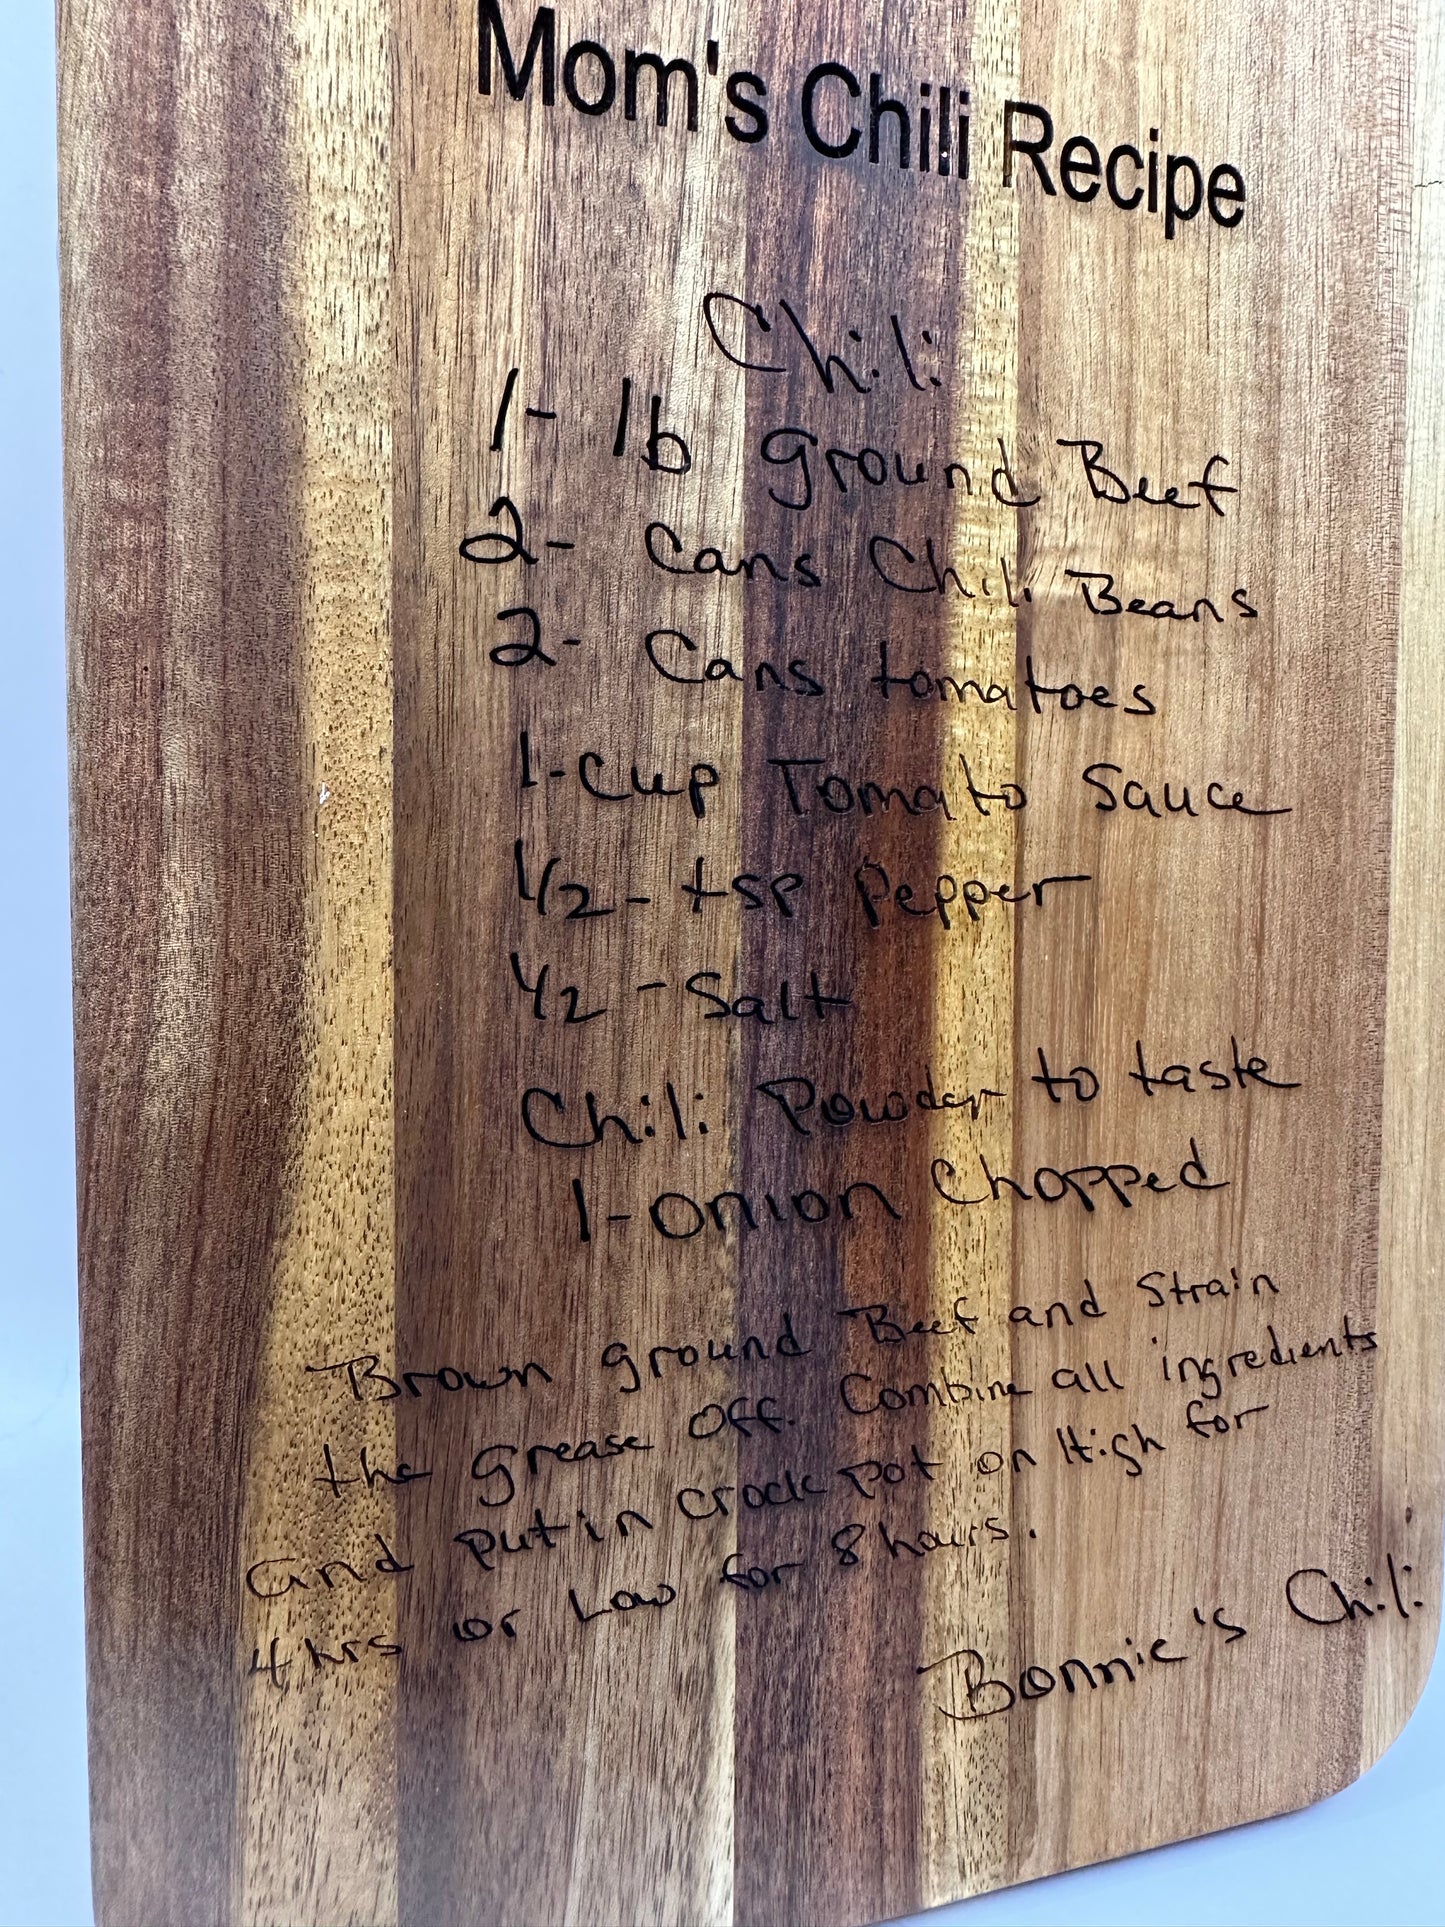 Mom's Chili Recipe
Chili
1- 1b ground Beef
2- Cans Chili Beans
2- Cans tomatoes
1-cup Tomato Sauce
1/2- tsp Pepper
1/2 - Salt
Chili Powder to taste
1-onion Chopped
Brown ground Beef and Strain
the grease OFF. Combine all ingredients
and put in crock pot on High for
4 hrs or Low for 8 hours.
Bonnie's Chili